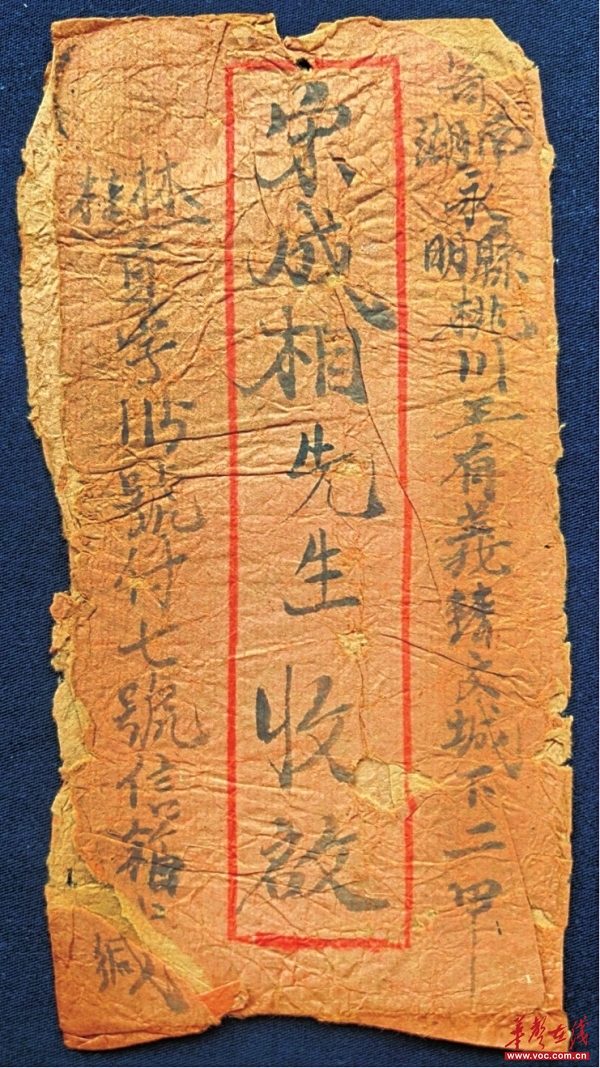 寄湖南永明縣桃川王有義轉交城下二甲
宋成相先生收啟
桂林直字115號付七號信箱 緘
華聲在线
www.voc.com.cn